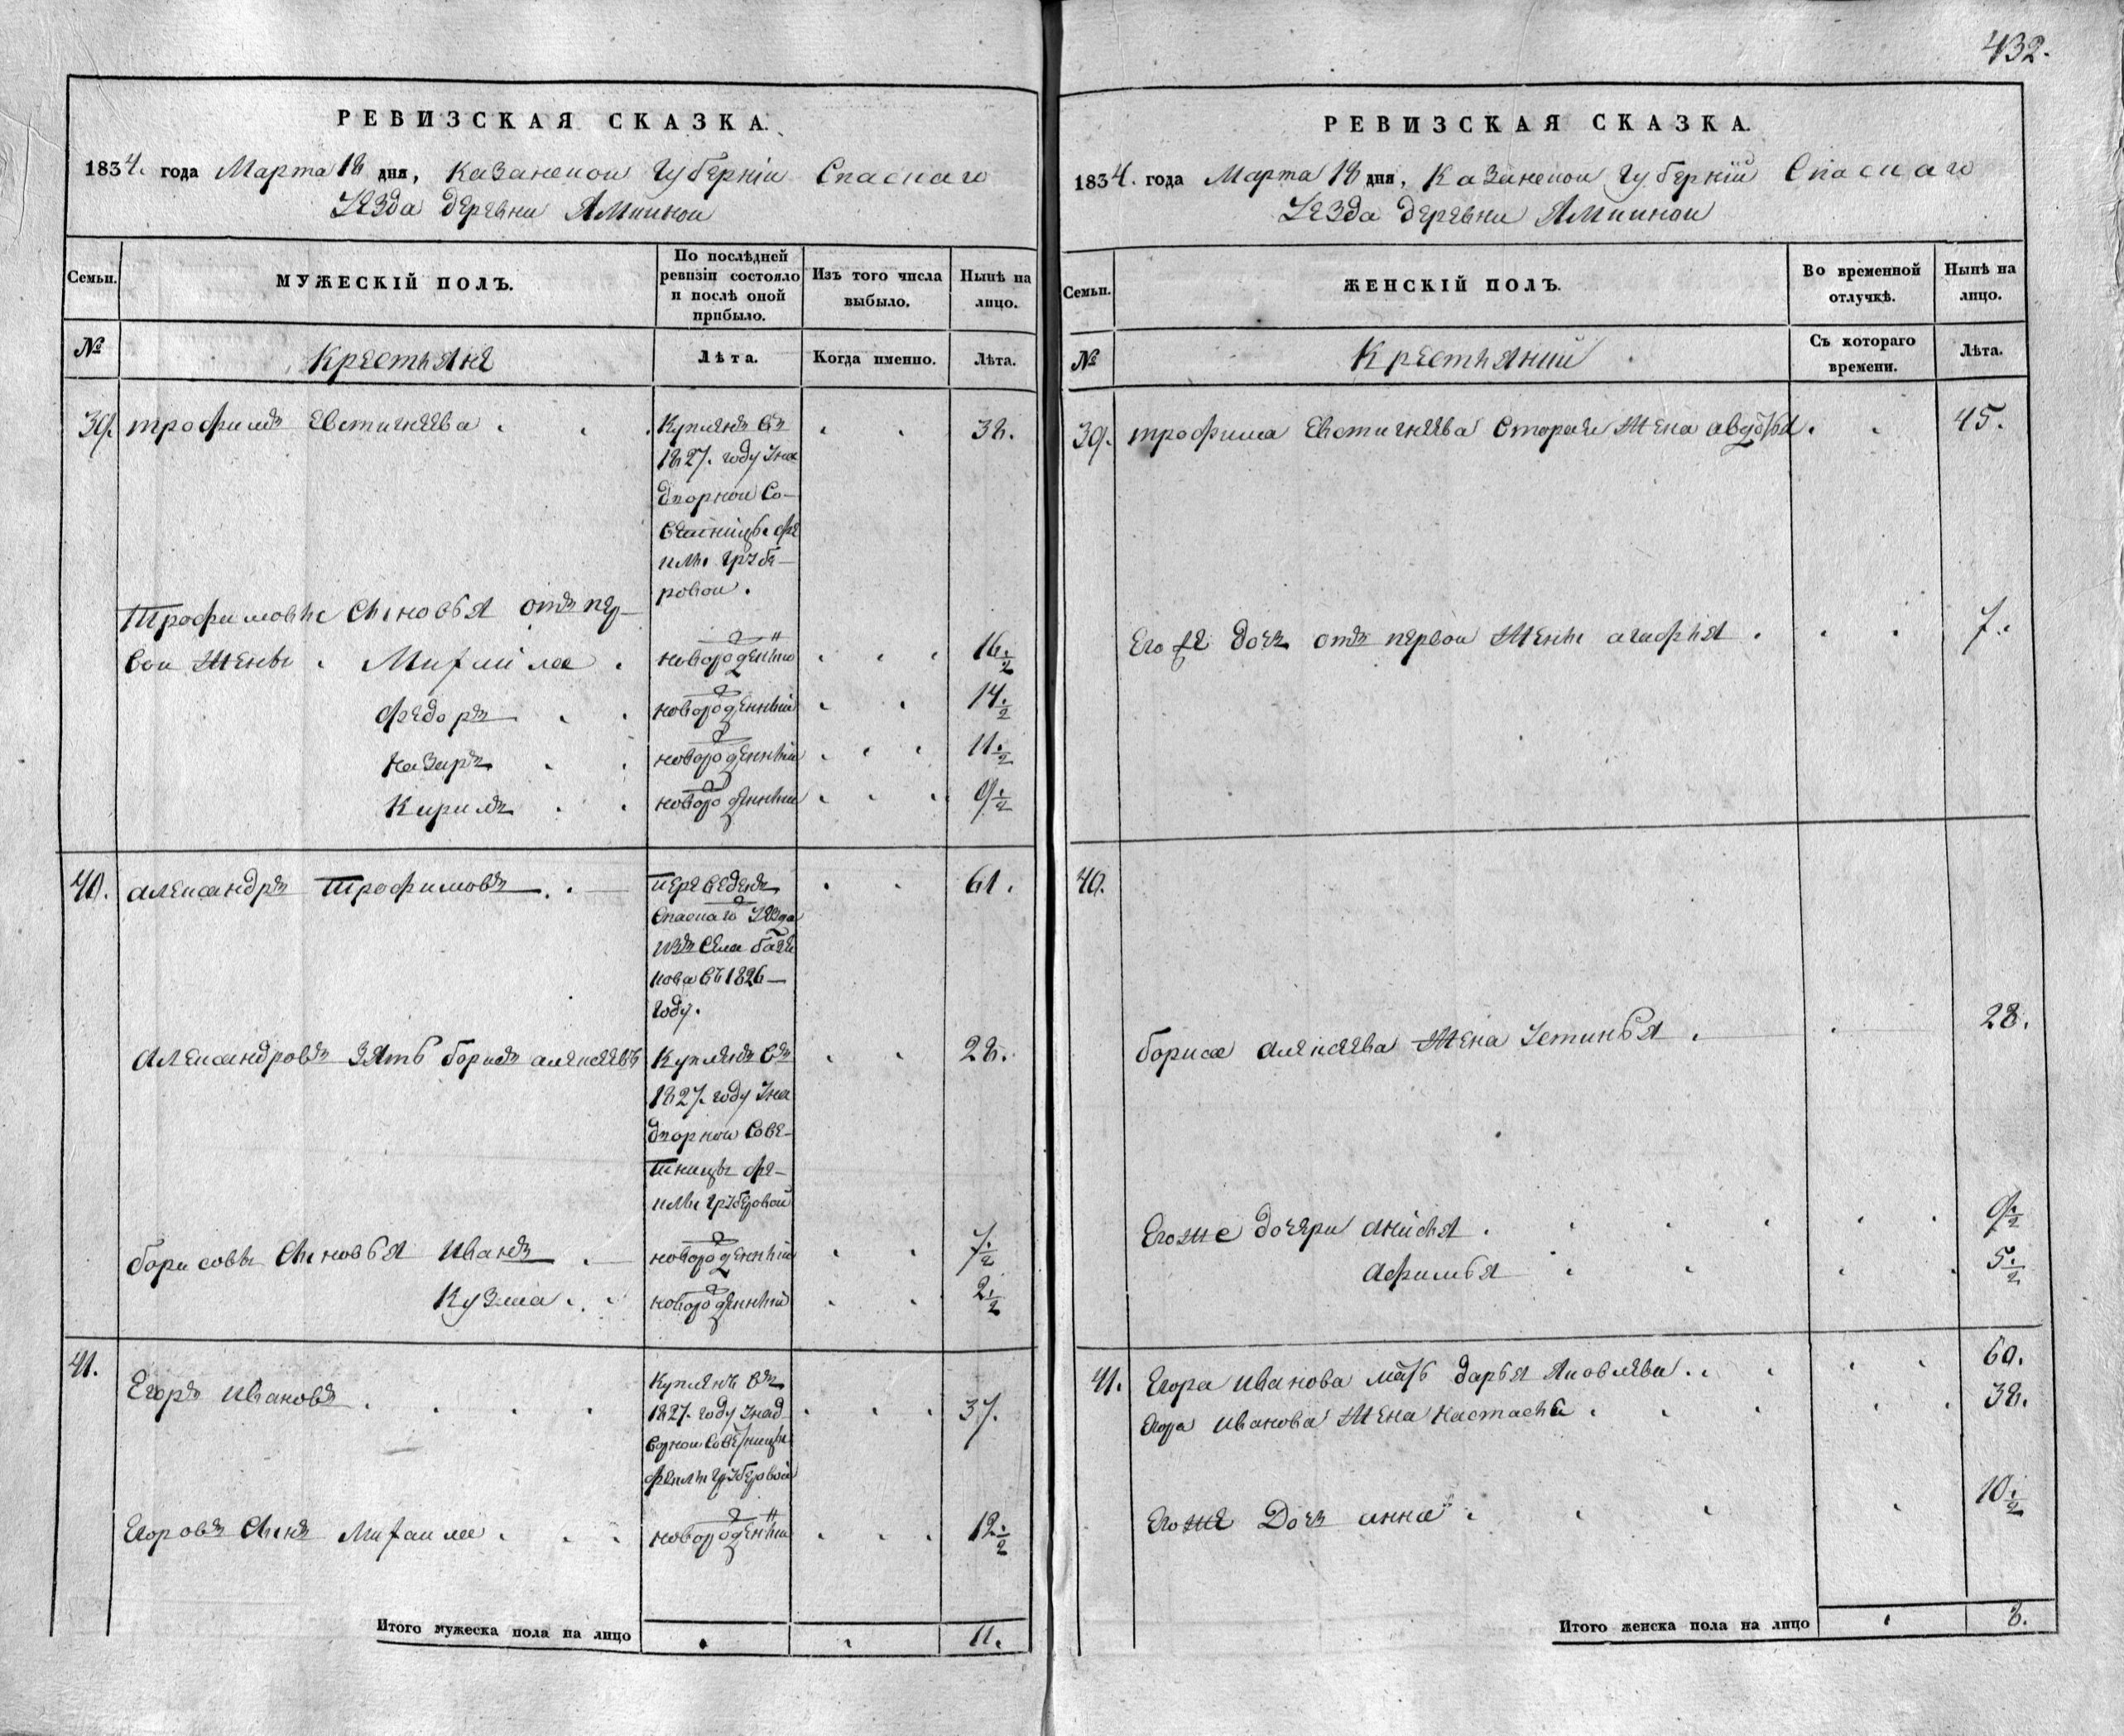 432.
РЕВИЗСКАЯ СКАЗКА.
1834. года Марта 18 дня, Казанской Губерніи Спаскаго
Уезда деревни Амминой
Семьи.
МУЖЕСКІЙ ПОЛЪ.
По послѣдней ревизіи состояло и послѣ оной прибыло.
Изъ того числа выбыло.
Нынѣ на лицо.
№
Крестьяне
Лѣта.
Когда именно.
Лѣта.
39. трофимъ Евстигнеева
Купленъ въ
38.
1827. году Уна
дворной Со-
ветницы Фе
клы Грубе-
ровой.
Трофимовы сыновья отъ пер-
вой жены Михайла
новорожденный
16. 1/2
Федоръ
новорожденный
14. 1/2
Назаръ
новорожденный
11. 1/2
Кирилъ
новорожденный
9. 1/2
40. Александръ Трофимовъ
переведенъ
61.
Спаскаго Уезда
изъ села
нова въ 1826
году.
Александровъ зять борисъ алексеевъ
Купленъ въ
28.
1827. году Уна
дворной Сове-
тницы Фе-
клы Груберовой
борисовы сыновья Иванъ
новорожденный
7. 1/2
Кузма
новорожденный
2. 1/2
41.
Егоръ Ивановъ
Купленъ въ
1827. году Унад
37.
ворной Советницы
Феклы Груберовой
Егоровъ сынъ Михаила
новорожденный
12. 1/2
Итого мужеска пола на лицо
11.
РЕВИЗСКАЯ СКАЗКА.
1834. года Марта 18 дня, Казанской Губерніи Спаскаго
Уезда деревни Амминой
Семьи.
ЖЕНСКІЙ ПОЛЪ.
Во временной отлучкѣ.
Нынѣ на лицо.
№
Крестьянки
Съ котораго времени.
Лѣта.
39. трофима Евстигнеева вторая жена авдотья
45.
Его же дочь отъ первой жены агафья
7.
40.
бориса алексеева жена Устинья
28.
Егоже дочери анисья
9. 1/2
Афимья
5. 1/2
41. Егора Иванова мать дарья Яковлева
60.
Егора Иванова жена настасья
38.
Егоже Дочь анна
10. 1/2
Итого женска пола на лицо
8.